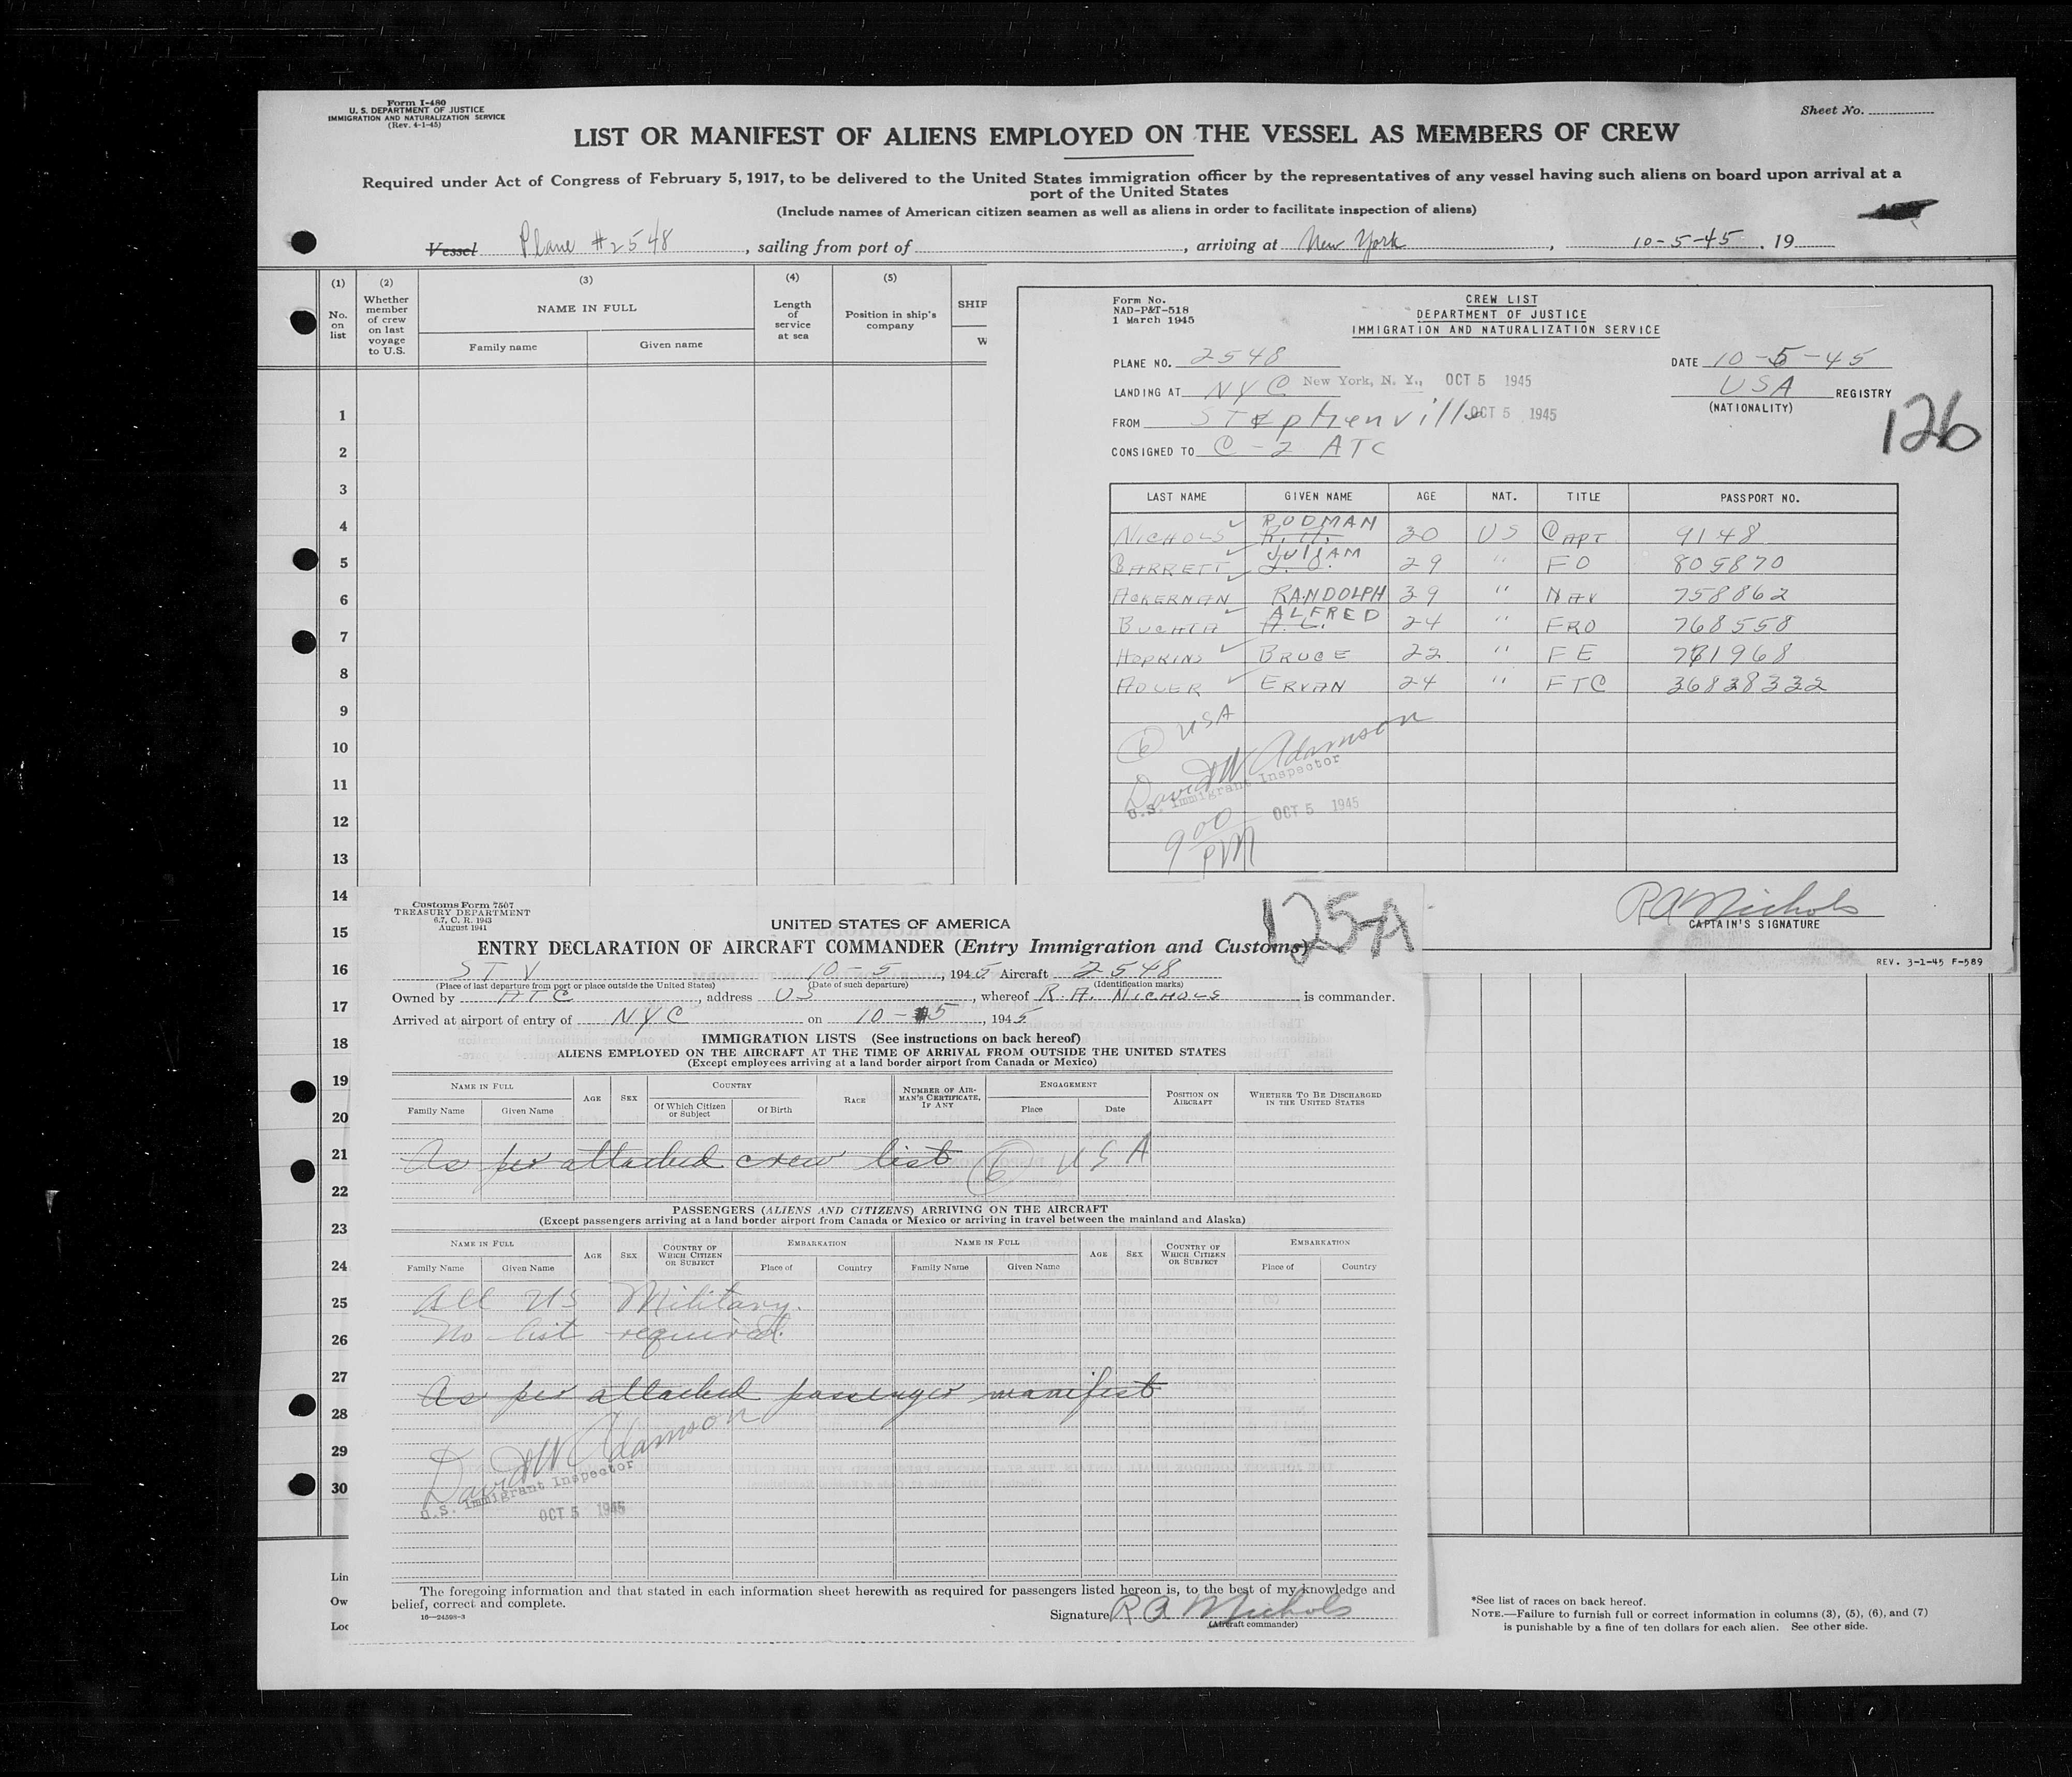 Form I-480
U. S. DEPARTMENT OF JUSTICE
IMMIGRATION AND NATURALIZATION SERVICE
(Rev. 4-1-45)
Sheet No.
LIST OR MANIFEST OF ALIENS EMPLOYED ON THE VESSEL AS MEMBERS OF CREW
Required under Act of Congress of February 5, 1917, to be delivered to the United States immigration officer by the representatives of any vessel having such aliens on board upon arrival at a
port of the United States
(Include names of American citizen seamen as well as aliens in order to facilitate inspection of aliens)
Vessel Plane #2548, sailing from port of , arriving at New York, 10-5-45, 19
(1) (2) (3) (4) (5)
No. on list
Whether member of crew on last voyage to U.S.
NAME IN FULL
Family name Given name
Length of service at sea
Position in ship's company
SHIP
W
1
2
3
4
5
6
7
8
9
10
11
12
13
14
15
16
17
18
19
20
21
22
23
24
25
26
27
28
29
30
Lin
Ow
Loc
Form No.
NAD-P&T-518
1 March 1945
CREW LIST
DEPARTMENT OF JUSTICE
IMMIGRATION AND NATURALIZATION SERVICE
PLANE NO. 2548 DATE 10-5-45
LANDING AT NYC New York, N. Y., OCT 5 1945 USA REGISTRY
(NATIONALITY)
FROM STephenville OCT 5 1945
126
CONSIGNED TO C-2 ATC
LAST NAME GIVEN NAME AGE NAT. TITLE PASSPORT NO.
NICHOLS RODMAN R. A. 30 US CAPT 9148
BARRETT JULIAM J. O. 29 " FO 805870
ACKERMAN RANDOLPH 39 " NAV 758862
BUCHTA ALFRED A. L. 24 " FRO 768558
HOPKINS BRUCE 22 " FE 781968
ADLER ERVAN 24 " FTC 36828322
(6) USA
David W Adamson
U.S. Immigrant Inspector
OCT 5 1945
9 00 PM
R A Nichols
CAPTAIN'S SIGNATURE
REV. 3-1-45 F-589
Customs Form 7507
TREASURY DEPARTMENT
6.7, C. R. 1943
August 1941
125-A
UNITED STATES OF AMERICA
ENTRY DECLARATION OF AIRCRAFT COMMANDER (Entry Immigration and Customs)
STV 10-5, 1945 Aircraft 2548
(Place of last departure from port or place outside the United States) (Date of such departure) (Identification marks)
Owned by ATC, address US, whereof R. A. NICHOLS is commander.
Arrived at airport of entry of NYC on 10-5, 1945
IMMIGRATION LISTS (See instructions on back hereof)
ALIENS EMPLOYED ON THE AIRCRAFT AT THE TIME OF ARRIVAL FROM OUTSIDE THE UNITED STATES
(Except employees arriving at a land border airport from Canada or Mexico)
NAME IN FULL AGE SEX COUNTRY RACE NUMBER OF AIRMAN'S CERTIFICATE, IF ANY ENGAGEMENT POSITION ON AIRCRAFT WHETHER TO BE DISCHARGED IN THE UNITED STATES
Family Name Given Name Of Which Citizen or Subject Of Birth Place Date
As per attached crew list (6) USA
PASSENGERS (ALIENS AND CITIZENS) ARRIVING ON THE AIRCRAFT
(Except passengers arriving at a land border airport from Canada or Mexico or arriving in travel between the mainland and Alaska)
NAME IN FULL AGE SEX COUNTRY OF WHICH CITIZEN OR SUBJECT EMBARKATION NAME IN FULL AGE SEX COUNTRY OF WHICH CITIZEN OR SUBJECT EMBARKATION
Family Name Given Name Place of Country Family Name Given Name Place of Country
All US Military.
No list required.
As per attached passenger manifest
David W Adamson
U.S. Immigrant Inspector
OCT 5 1945
The foregoing information and that stated in each information sheet herewith as required for passengers listed hereon is, to the best of my knowledge and
belief, correct and complete.
16—24598-3
Signature R A Nichols
(Aircraft commander)
*See list of races on back hereof.
NOTE.—Failure to furnish full or correct information in columns (3), (5), (6), and (7)
is punishable by a fine of ten dollars for each alien. See other side.